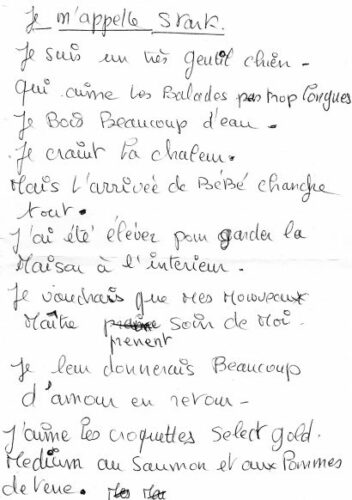 Je m'appelle Stark.
Je suis un très gentil chien -
qui aime les Balades pas trop longues
Je Bois Beaucoup d'eau.
Je craint la chaleur.
Mais l'arrivée de BéBé change
tout.
J'ai été élever pour garder la
Maison à l'interieur.
Je voudrais que Mes Nouveaux
Maître soin de Moi.
prenent
Je leur donnerais Beaucoup
d'amour en retour -
J'aime les croquettes Select gold.
Medium au Saumon et aux Pommes
de Terre.